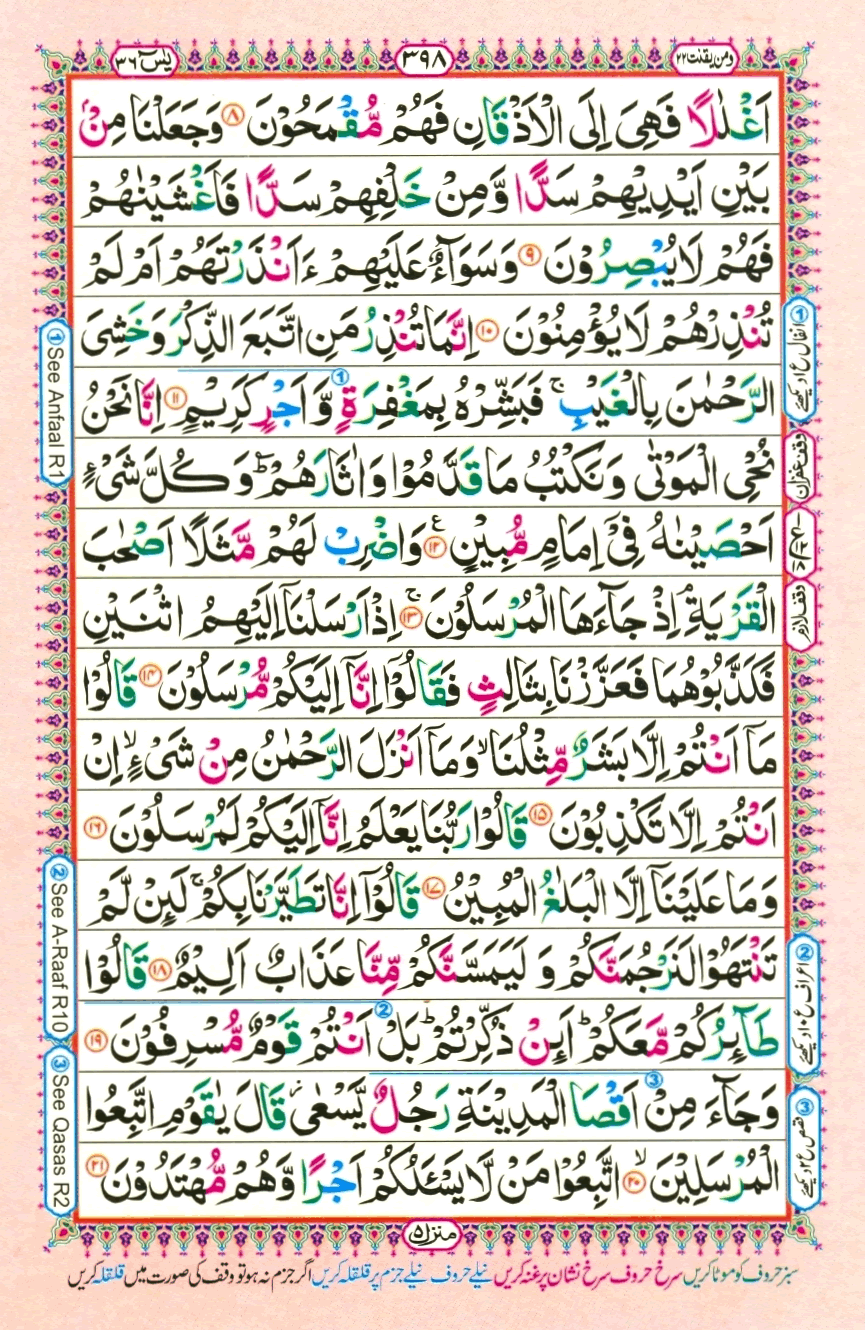 ومن يقنت ٢٢
٣٩٨
يٰسٓ ٣٦
اَغْلٰلًا فَهِىَ اِلَى الْاَذْقَانِ فَهُمْ مُّقْمَحُوْنَ ۝٨ وَجَعَلْنَا مِنْۢ
بَيْنِ اَيْدِيْهِمْ سَدًّا وَّمِنْ خَلْفِهِمْ سَدًّا فَاَغْشَيْنٰهُمْ
فَهُمْ لَا يُبْصِرُوْنَ ۝٩ وَسَوَآءٌ عَلَيْهِمْ ءَاَنْذَرْتَهُمْ اَمْ لَمْ
تُنْذِرْهُمْ لَا يُؤْمِنُوْنَ ۝١٠ اِنَّمَا تُنْذِرُ مَنِ اتَّبَعَ الذِّكْرَ وَخَشِىَ
الرَّحْمٰنَ بِالْغَيْبِ ۚ فَبَشِّرْهُ بِمَغْفِرَةٍ وَّاَجْرٍ كَرِيْمٍ ۝١١ اِنَّا نَحْنُ
نُحْىِ الْمَوْتٰى وَنَكْتُبُ مَا قَدَّمُوْا وَاٰثَارَهُمْ ؕ وَكُلَّ شَىْءٍ
اَحْصَيْنٰهُ فِىْۤ اِمَامٍ مُّبِيْنٍ ۝١٢ ع وَاضْرِبْ لَهُمْ مَّثَلًا اَصْحٰبَ
الْقَرْيَةِ ۘ اِذْ جَآءَهَا الْمُرْسَلُوْنَ ۝١٣ ۚ اِذْ اَرْسَلْنَاۤ اِلَيْهِمُ اثْنَيْنِ
فَكَذَّبُوْهُمَا فَعَزَّزْنَا بِثَالِثٍ فَقَالُوْۤا اِنَّاۤ اِلَيْكُمْ مُّرْسَلُوْنَ ۝١٤ قَالُوْا
مَاۤ اَنْتُمْ اِلَّا بَشَرٌ مِّثْلُنَا ۙ وَمَاۤ اَنْزَلَ الرَّحْمٰنُ مِنْ شَىْءٍ ۙ اِنْ
اَنْتُمْ اِلَّا تَكْذِبُوْنَ ۝١٥ قَالُوْا رَبُّنَا يَعْلَمُ اِنَّاۤ اِلَيْكُمْ لَمُرْسَلُوْنَ ۝١٦
وَمَا عَلَيْنَاۤ اِلَّا الْبَلٰغُ الْمُبِيْنُ ۝١٧ قَالُوْۤا اِنَّا تَطَيَّرْنَا بِكُمْ ۚ لَئِنْ لَّمْ
تَنْتَهُوْا لَنَرْجُمَنَّكُمْ وَلَيَمَسَّنَّكُمْ مِّنَّا عَذَابٌ اَلِيْمٌ ۝١٨ قَالُوْا
طَآئِرُكُمْ مَّعَكُمْ ؕ اَئِنْ ذُكِّرْتُمْ ؕ بَلْ اَنْتُمْ قَوْمٌ مُّسْرِفُوْنَ ۝١٩
وَجَآءَ مِنْ اَقْصَا الْمَدِيْنَةِ رَجُلٌ يَّسْعٰى ۫ قَالَ يٰقَوْمِ اتَّبِعُوا
الْمُرْسَلِيْنَ ۝٢٠ ۙ اتَّبِعُوْا مَنْ لَّا يَسْئَلُكُمْ اَجْرًا وَّهُمْ مُّهْتَدُوْنَ ۝٢١
① انفال ع ١ دیکھئے
وقف غفران
وقف لازم
② اعراف ع ١٠ دیکھئے
③ قصص ع ٢ دیکھئے
① See Anfaal R1
② See A-Raaf R10
③ See Qasas R2
منزل ٥
سبز حروف کو موٹا کریں سرخ حروف سرخ نشان پر غنہ کریں نیلے حروف نیلے جزم پر قلقلہ کریں اگر جزم نہ ہو تو وقف کی صورت میں قلقلہ کریں